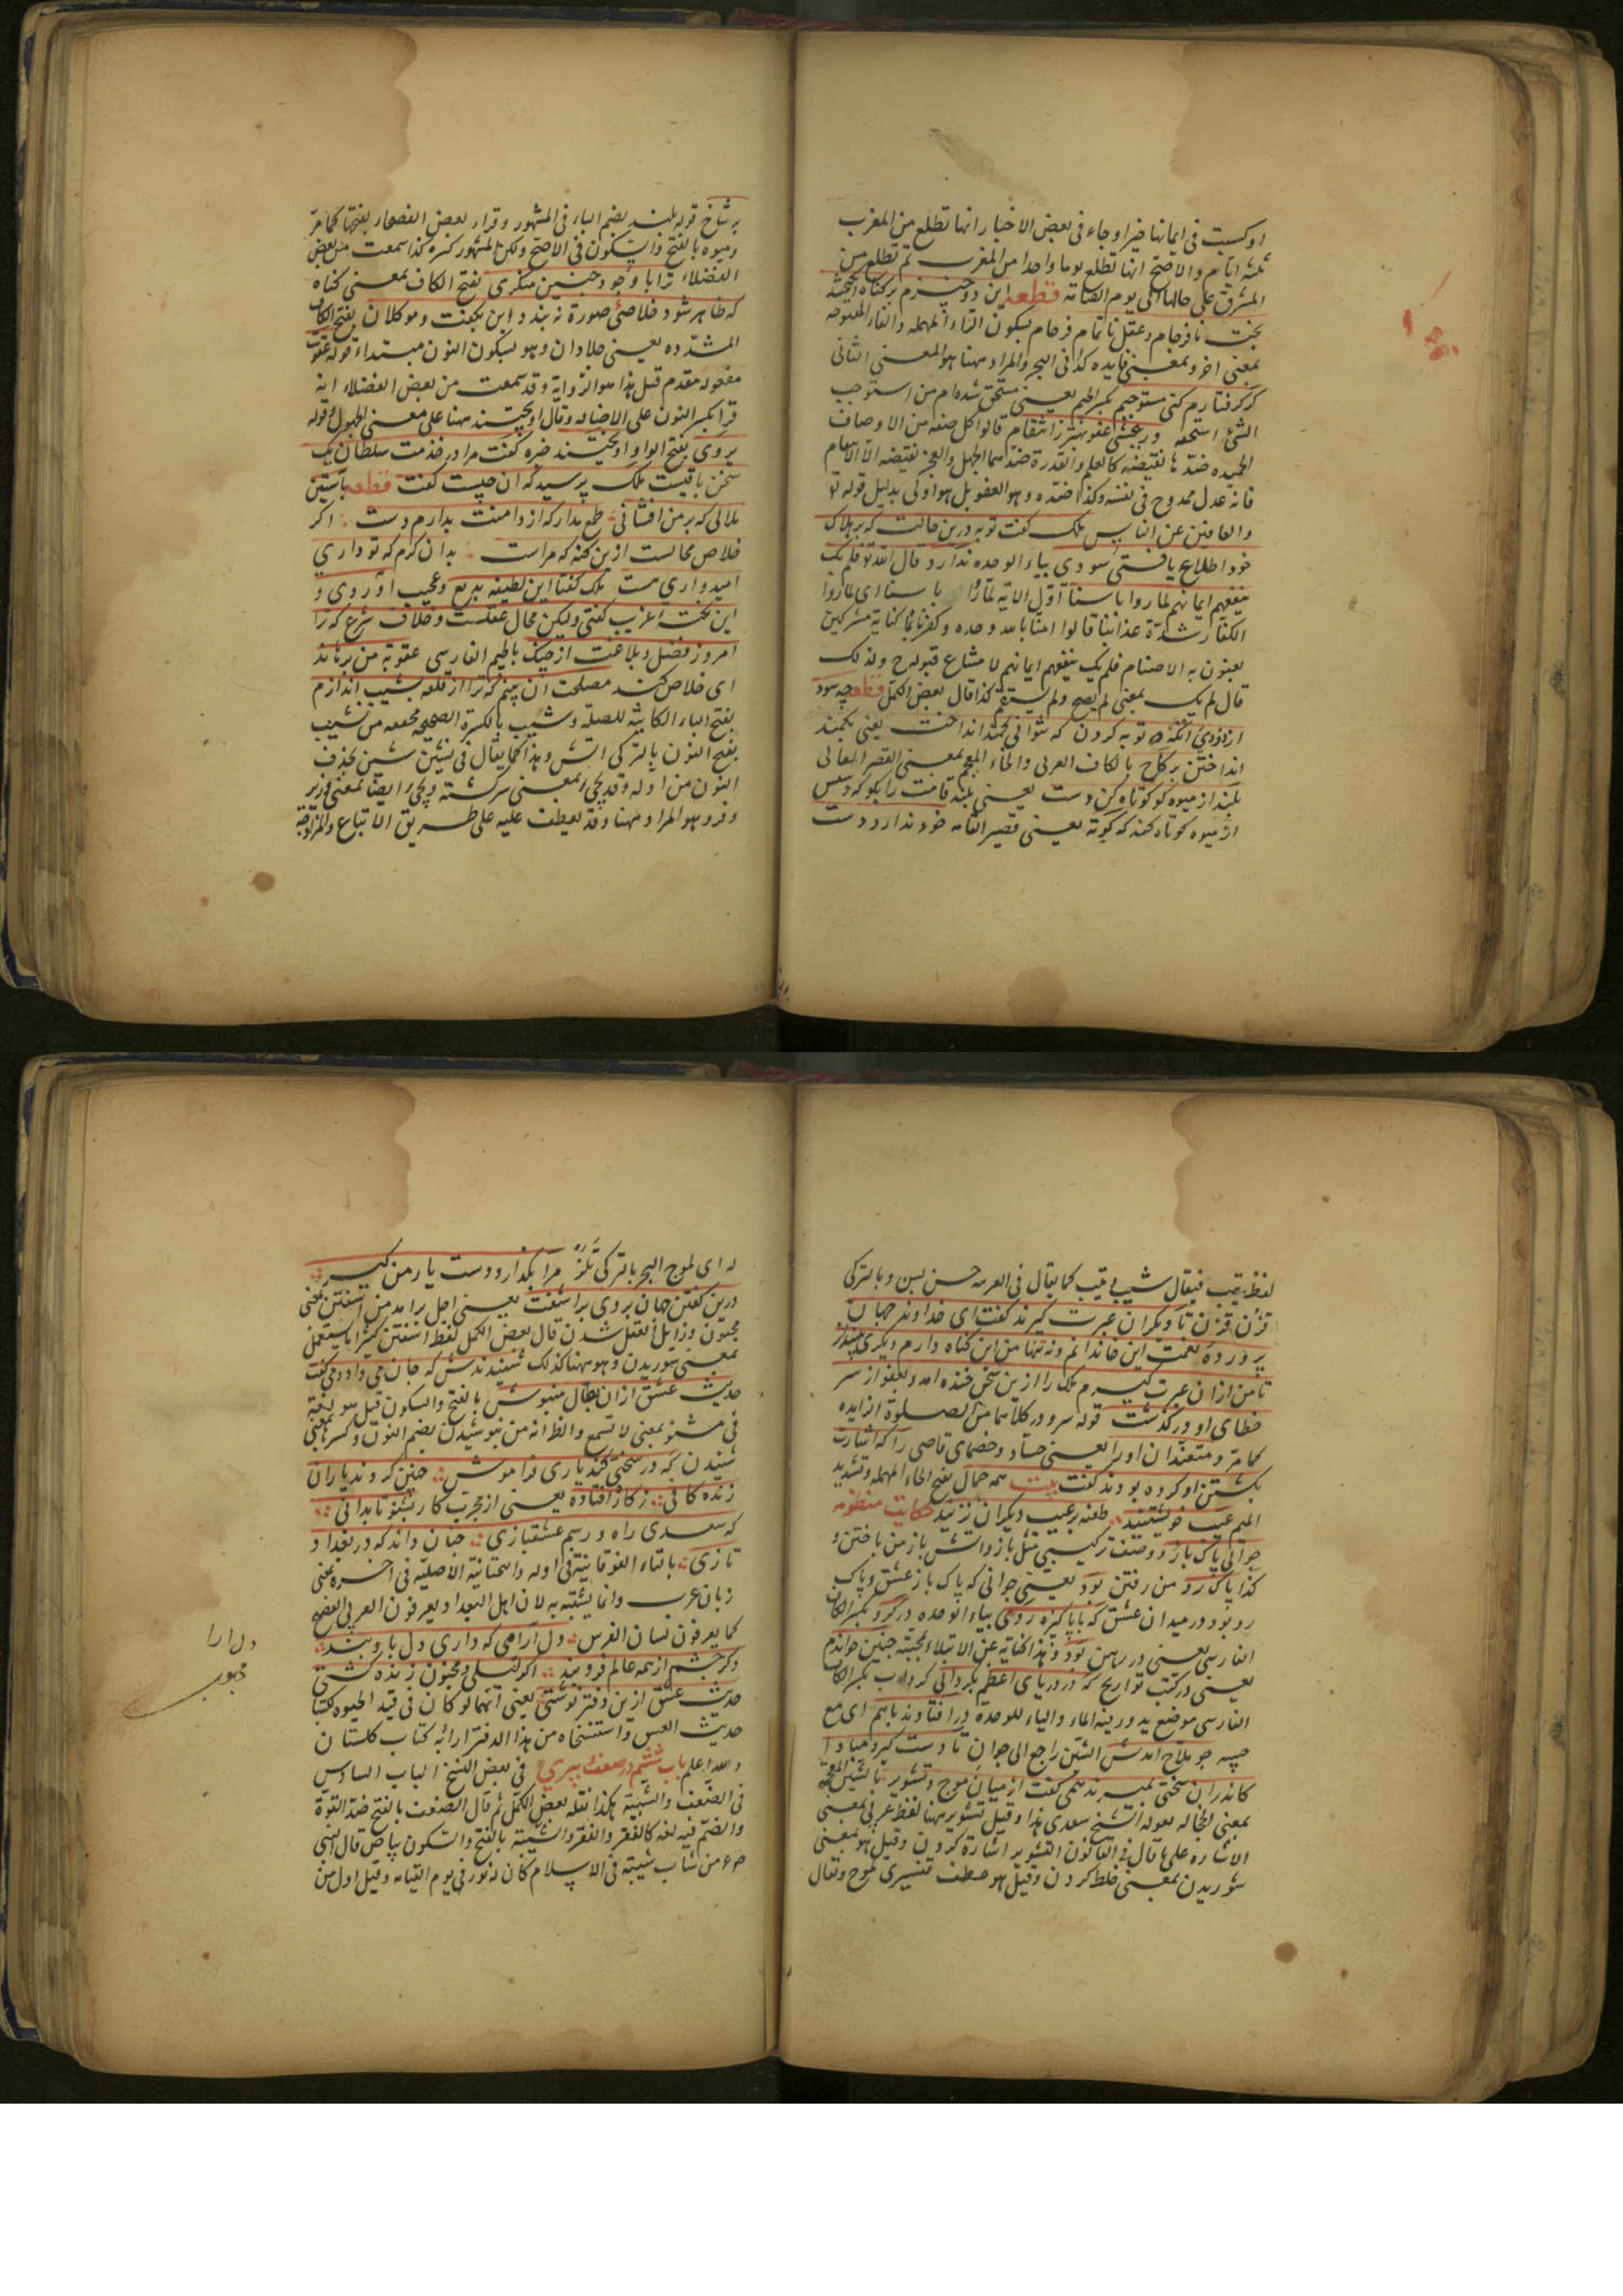 او كسبت فى ايمانها خيرا وجاء فى بعض الاخبار انها تطلع من المغرب
ثلثة ايام والاصح انها تطلع يوما واحدا من المغرب ثم تطلع من
المشرق على حالها الى يوم القيامة قطعه اين دو چيزم بر كناه انكيختند
بخت نافرجام وعقل ناتمام فرجام بسكون الراء المهملة والفاء المفتوحة
بمعنى اخر وبمعنى فايده كذا فى البحر والمراد ههنا هو المعنى الثانى
كر كرفتارم كنى مستوجبم بكسر الجيم يعنى مستحق شده ام من استوجب
الشئ استحقه ور ببخشى عفو بهتر ز انتقام قالوا كل صفة من الاوصاف
الحميده ضدها نقيضه كالعلم والقدرة ضدهما الجهل والعجز نقيضه الا الانتقام
فانه عدل ممدوح فى نفسه وكذا ضده وهو العفو بل هو اولى بدليل قوله تع
والعافين عن الناس ملك كفت توبه درين حالت كه بر هلاك
خود اطلاع يافتى سودى بياء الوحده ندارد قال الله تع فلم يك
ينفعهم ايمانهم لما راوا باسنا اول الاية لما راوا باسنا اى لما راوا
الكفار شدة عذابنا قالوا امنا بالله وحده وكفرنا بما كنا به مشركين
يعنون به الاصنام فلم يك ينفعهم ايمانهم لامتناع قبوله ح ولذلك
قال لم يك بمعنى لم يصح ولم يستقم كذا قال بعض الكمل قطعه چه سود
از دزدى انكه توبه كردن كه نتوانى كمند انداخت يعنى بكمند
انداختن بر كاخ بالكاف العربى والخاء المعجمة بمعنى القصر العالى
بلند از ميوه كو كوتاه كن دست يعنى بلند قامت را بكو كه دستش
از ميوه كوتاه كند كه كوته يعنى قصير القامه خود ندارد دست
بر شاخ قوله بلند بضم الباء فى المشهور وقراء بعض الفصحاء بفتحها كما مر
وميوه بالفتح والسكون فى الاصح ولكن المشهور كسره كذا سمعت من بعض
الفضلاء ترا با وجود چنين منكرى بفتح الكاف بمعنى كناه
كه ظاهر شود خلاصى صورة نه بندد اين بكفت وموكلان بفتح الكاف
المشدده يعنى جلادان وهو بسكون النون مبتداء قوله عقوبت
مفعوله مقدم قيل هذا هو الرواية وقد سمعت من بعض الفضلاء انه
قرا بكسر النون على الاضافه وقال اويختند ههنا على معنى المجهول وقوله
بر وى بفتح الواو اويختند خبره كفت مرا در خدمت سلطان يك
سخن باقيست ملك پرسيد كه ان چيست كفت قطعه بآستين
ملالى كه بر من افشانى طمع مدار كه از دامنت بدارم دست اكر
خلاص محالست ازين كنه كه مراست بدان كرم كه تو دارى
اميدوارى هست ملك كفتا اين لطيفه بديع وعجيب آوردى و
اين نكتهٔ غريب كفتى وليكن محال عقلست وخلاف شرع كه ترا
امروز فضل وبلاغت از چنك بالجيم الفارسى عقوبة من برهاند
اى خلاص كند مصلحت ان بينم كه ترا از قلعه بشيب اندازم
بفتح الباء الكائنة للصلة وشيب بالكسرة الصحيحه مخففه من نشيب
بفتح النون بالتركى انيش وهذا كما يقال فى نشين شين بحذف
النون من اوله
وفرو هو المراد ههنا وقد يعطف عليه على طريق الاتباع والمزاوجة
لفظ تيب فيقال شيب تيب كما يقال فى العربيه حسن بسن وبالتركى
قزن قزن تا ديكران عبرت كيرند كفت اى خداوند جهان
پروردهٔ نعمت اين خاندانم ونه تنها من اين كناه دارم ديكرى بينداز
تا من ازان عبرت كيرم ملك را ازين سخن خنده امد وبعفو از سر
خطاى او در كذشت قوله سر ودر كلاهما من الصلوة الزايده
كما مر ومتعندان او را يعنى حساد وخصماى قاصى را كه اشارت
بكشتن او كرده بودند كفت بيت همه حمال بفتح الحاء المهملة وتشديد
الميم عيب خويشتنيد طعنه بر عيب ديكران نزنيد حكايت منظومه
جوانى پاك باز ووصف تركيبى مثل باز واتش باز من باختن و
كذا پاك رو من رفتن بود يعنى جوانى كه پاك باز عشق وپاك
رو بود در ميدان عشق كه با پاكيزه روى بياء الوحده در كرو بكسر الكاف
الفارسى يعنى در رهن بود وهذا كناية عن الابتلاء بمحبته چنين خواندم
يعنى در كتب تواريخ كه در درياى اعظم بكردابى كرداب بكسر الكاف
الفارسى موضع يدور فيه الماء والياء للوحدة در افتادند باهم اى مع
حبيبه چو ملاح امدش الشين راجع الى جوان تا دست كيرد مبادا
كاندران سختى بميرند همى كفت از ميان موج وتشوير بالشين المعجمة
بمعنى الخجاله يعنى قوله الشيخ سعدى هذا وقيل تشوير ههنا لفظ عربى بمعنى
الاشاره على ما قال فى القانون التشوير اشارة كردن وقيل هو بمعنى
شوريدن بمعنى خلط كردن وقيل هو عطف تفسيرى لموج ويقال
له اى لموج البحر بالتركى تلز مرا بكذار ودست يار من كير
درين كفتن جهان بر وى بر اشفت يعنى اجل برامد من اشفتن بمعنى
مجنون وزايل العقل شدن قال بعض الكمل لفظ اشفتن كثيرا ما يستعمل
بمعنى شوريدن وهو ههنا كذلك شنيدندش كه جان مى داد ومى كفت
حديث عشق ازان بطال منيوش بالفتح والسكون قيل هو لغة
فى مشنو بمعنى لا تسمع والظ انه من نيوشيدن بضم النون وكسرها بمعنى
شنيدن كه در سختى كند يارى فراموش چنين كردند ياران
زندكانى ز كار افتاده يعنى از مجرب كار بشنو تا بدانى
كه سعدى راه ورسم عشقبازى چنان داند كه در بغداد
تازى بالتاء الفوقانية فى اوله والتحتانية الاصليه فى اخره بمعنى
زبان عرب وانما يشتبه به لان اهل البغداد يعرفون العربى الفصيح
كما يعرفون لسان الفرس دل آرامى كه دارى دل بارو بند
دكر چشم از همه عالم فرو بند اكر ليلى ومجنون زنده كشتى
حديث عشق ازين دفتر نوشتى يعنى انهما لو كان فى قيد الحيوه لكتبا
حديث العشق واستنسخاه من هذا الدفتر اراد به كتاب كلستان
والله اعلم باب ششم در ضعف وپيرى فى بعض النسخ الباب السادس
فى الضعف والشيبة هكذا نقله بعض الكمل ثم قال الضعف بالفتح ضد القوة
والضم فيه لغة كالفقر والفقر والشيبة بالفتح والسكون بياض قال النبى
صم من شاب شيبة فى الاسلام كان له نور فى يوم القيامه وقيل اول من
دل ارا
محبوب